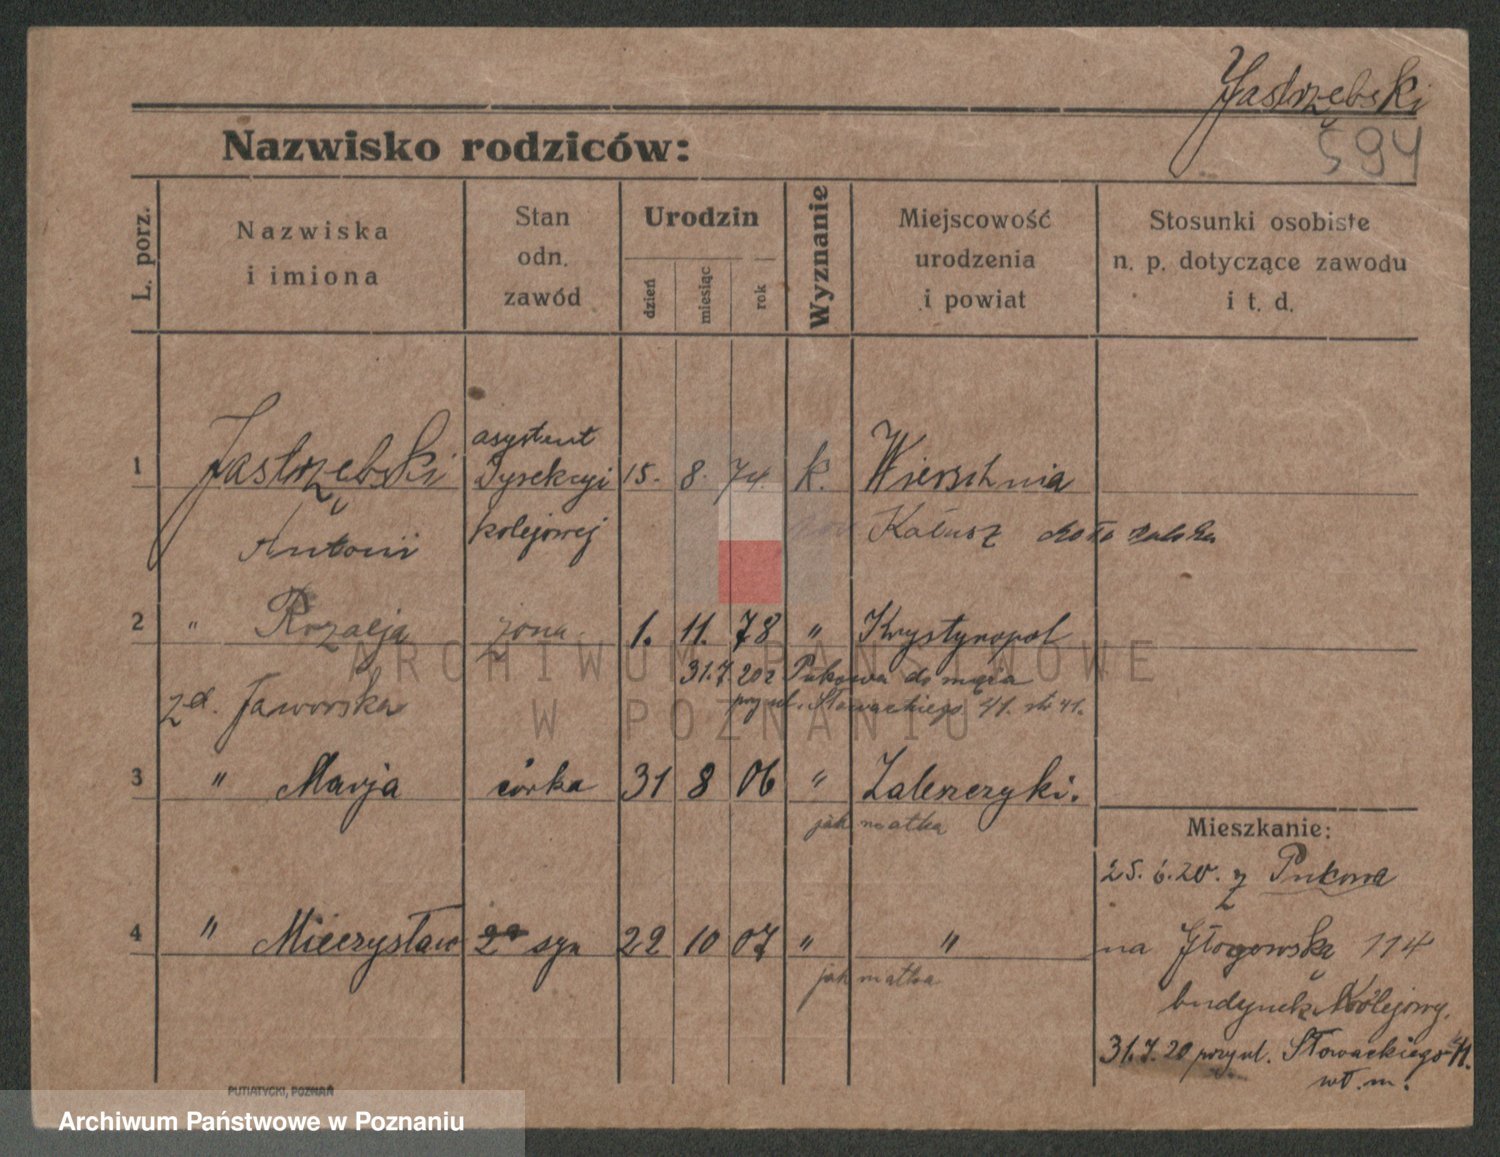 Jastrzębski
594
Nazwisko rodziców:
L. porz.
Nazwiska
i imiona
Stan
odn.
zawód
Urodzin
dzień
miesiąc
rok
Wyznanie
Miejscowość
urodzenia
i powiat
Stosunki osobiste
n. p. dotyczące zawodu
i t. d.
asystent
1 Jastrzębski Dyrekcyi 15. 8. 74. k. Wierschnia
Antoni kolejowej Kałusz
2 " Rozalja żona 1. 11. 78 " Krystynopol
31.7.20 z Pukowa do męża
zd. Jaworska przy ul. Słowackiego 41.
3 " Marja córka 31 8 06 " Zaleszczyki.
jak matka
Mieszkanie:
25.6.20. z Pukowa
4 " Mieczysław syn 22 10 07 " " na Głogowska 114
jak matka
budynek Kolejowy.
31.7.20 przy ul. Słowackiego 41.
wł. m.
PUTIATYCKI, POZNAŃ
ARCHIWUM PAŃSTWOWE
W POZNANIU
Archiwum Państwowe w Poznaniu